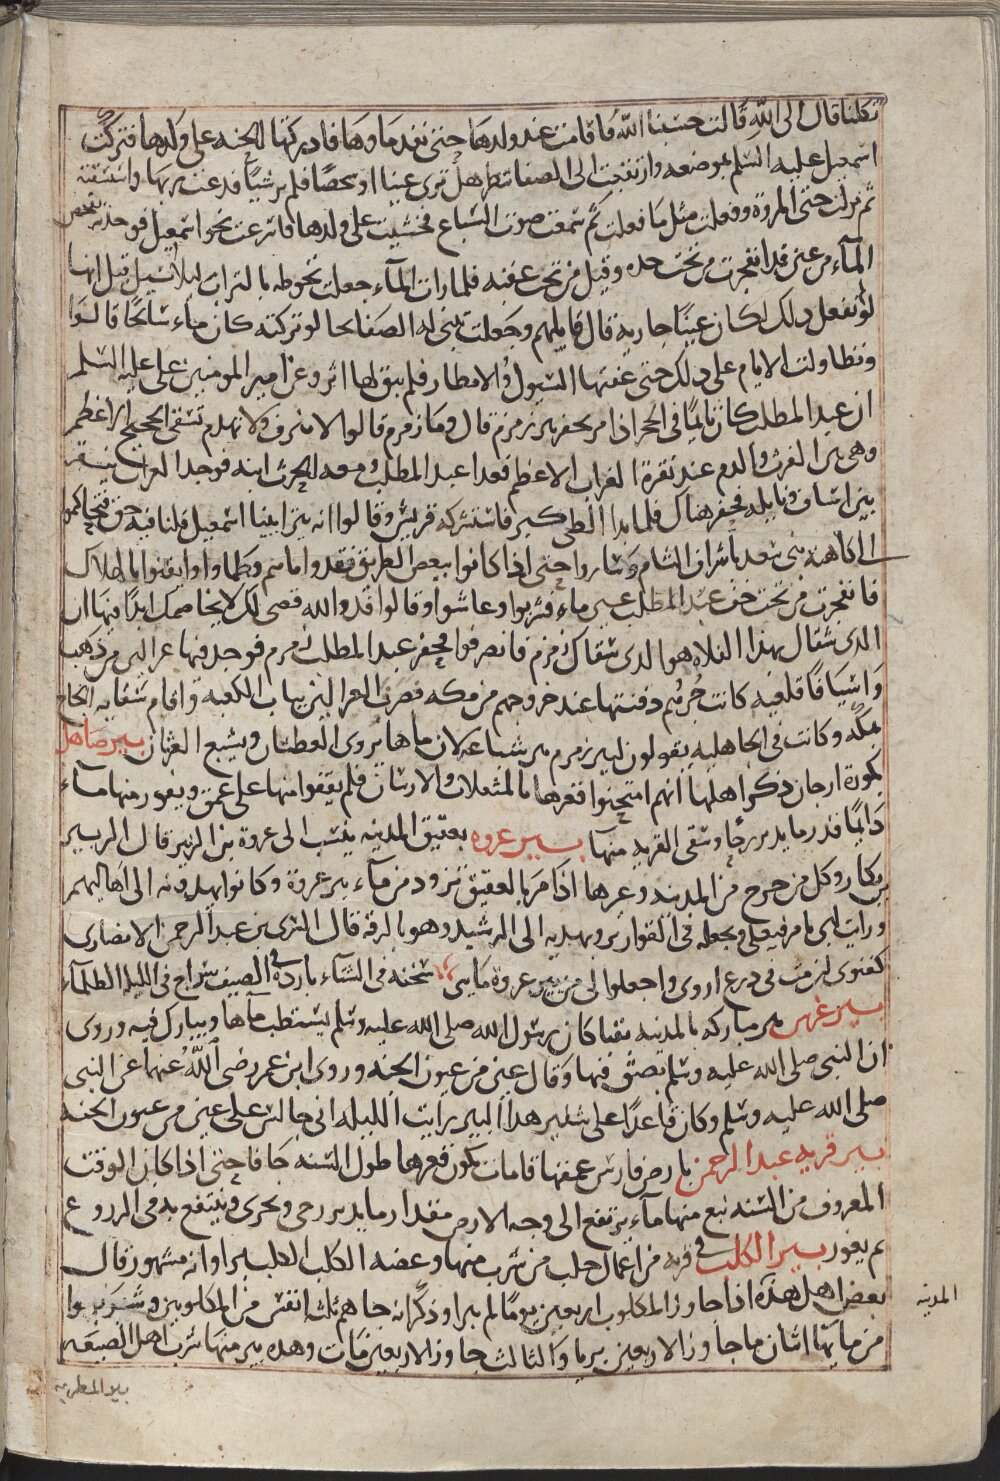 تكلنا قال الى الله قالت حسبنا الله فاقامت عند ولدها حتى نفد ماوها فادركتها الحنه على ولدها فتركت
اسمعيل عليه السلم بموضعه وارتفعت الى الصفا تنظر هل ترى عينا او شخصا فلم تر شيا فدعت ربها واستسقته
ثم نزلت حتى المروة وفعلت مثل ما فعلت ثم سمعت صوت السباع فخشيت على ولدها فاسرعت نحو اسمعيل فوجدته يفحص
المآء من عين قد انفجرت من تحت خده وقيل من تحت عقبه فلما رات المآء جعلت تحوطه بالتراب ليلا يسيل قيل انها
لو لم تفعل ذلك لكان عينا جارية قال قايلهم وجعلت تبني له الصفايحا لو تركته كان مآء سايحا قالوا
وتطاولت الايام على ذلك حتى عفتها السيول والامطار فلم يبق لها اثر وعن امير المومنين على عليه السلم
ان عبد المطلب كان نايما في الحجر اذ امر بحفر بير زمزم قال وما زمزم قالوا لا تنزف ولا تهدم تسقى الحجيج الاعظم
وهى بين الفرث والدم عند نقرة الغراب الاعظم فغدا عبد المطلب ومعه الحرث ابنه فوجد الغراب ينقر
بين اساف ونايله فحفر هناك فلما بدا الطى كبر فاستشركه قريش وقالوا انه بير ابينا اسمعيل فلنا فيه حق فتحاكموا
الى كاهنة بني سعد باشراف الشام وساروا حتى اذا كانوا ببعض الطريق نفد ماهم وظماوا وايقنوا بالهلاك
فانفجرت من تحت خف عبد المطلب عين مآء فشربوا وعاشوا وقالوا قد والله قضى لك لا نخاصمك ابدا فيها ان
الذي سقاك بهذا الفلاة هو الذي سقاك زمزم فانصرفوا فحفر عبد المطلب زمزم فوجد فيها غزالين من ذهب
واسيافا قلعيه كانت جرهم دفنتها عند خروجهم من مكه فضرب الغزالين بباب الكعبه واقام سقايه الحاج
بمكه وكانت في الجاهليه يقولون لبير زمزم بير شباعه لان ماها يروى العطشان ويشبع الغرثان بير صاهل
بكورة ارجان ذكر اهلها انهم امتحنوا قعرها بالمثقلات والارسان فلم يقفوا منها على عمق ويفور منها مآء
دايما قدر ما يدير رحا وسقى القريه منها بير عروه بعقيق المدينه ينسب الى عروة بن الزبير قال الزبير
بن بكار وكل من خرج من المدينه وغيرها اذا مر بالعقيق تزود من مآء بير عروة وكانوا يهدونه الى اهاليهم
ورايت ابي يامر فيغلى ويجعله في القوارير ويهديه الى الرشيد وهو بالرقه قال السري بن عبد الرحمن الانصاري
كفنوى ان مت في درع اروى واجعلوا لى من بير عروة ماى سخنه في الشتآء بارده في الصيف سراج في الليله الظلمآء
بير غرس بير مباركه بالمدينه بقبا كان رسول الله صلى الله عليه وسلم يستطب ماها ويبارك فيه وروى
ان النبي صلى الله عليه وسلم بصق فيها وقال عين من عيون الجنه وروى ابن عمر رضى الله عنهما عن النبي
صلى الله عليه وسلم وكان قاعدا على شفير هذا البير رايت الليله اني جالس على عين من عيون الجنه
بير قريه عبد الرحمن بارض فارس عمقها قامات تكون قعرها طول السنه جافا حتى اذا كان الوقت
المعروف من السنه نبع منها مآء يرتفع الى وجه الارض مقدار ما يدير رحى ويجرى وينتفع به في الزروع
ثم يغور بير الكلب في قريه من اعمال حلب من شرب منها وعضه الكلب الكلب برا وانه مشهور قال
بعض اهل هذه اذا جاوز المكلوب اربعين يوما لم يبرا وذكر انه جاهم ثلث انفس من المكلوبين وشربوا
من مايها اثنان ما جاوز الاربعين بريا والثالث جاوز الاربعين فمات وهذه بير منها شرب اهل الضيعه
المدينه
بير المطريه